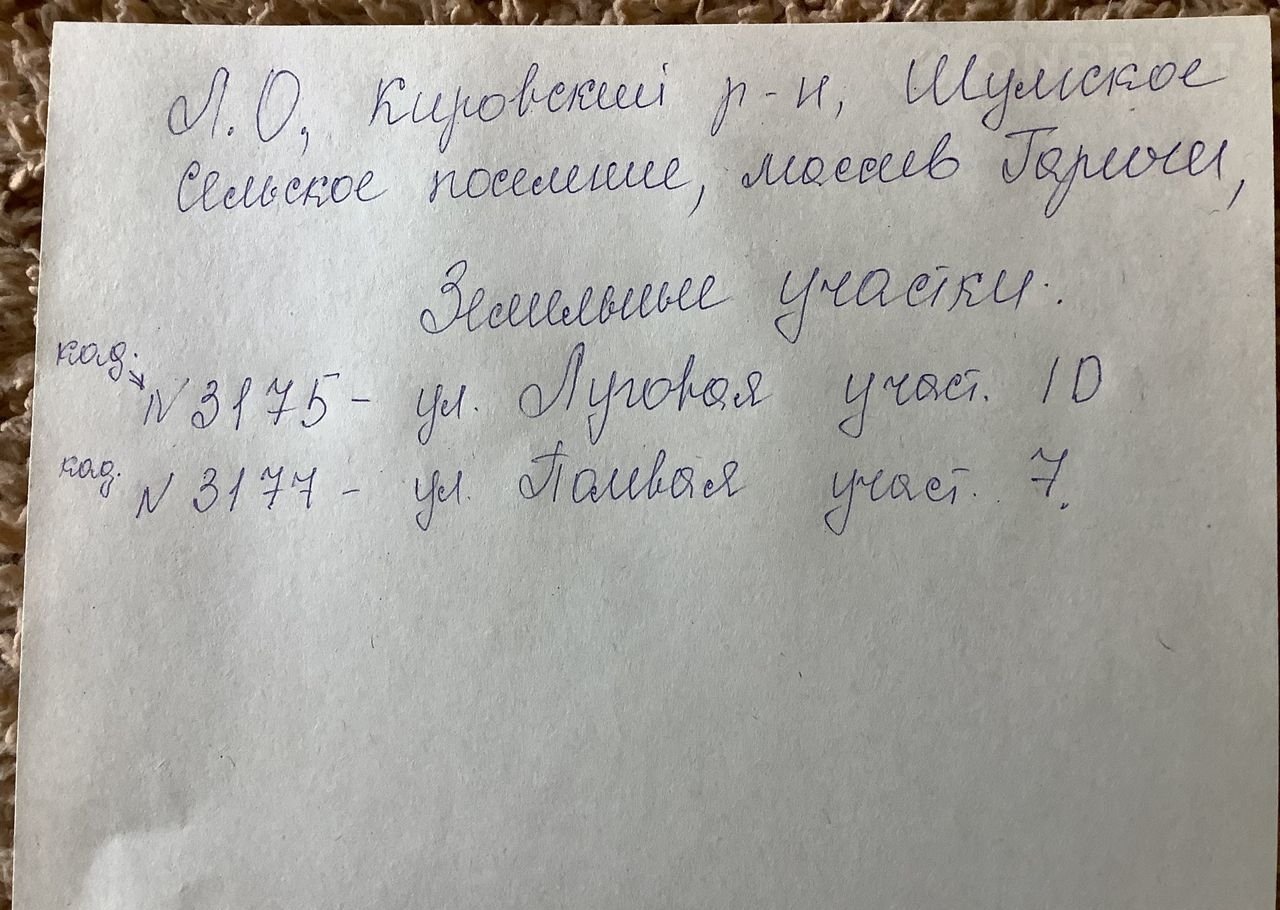 Л.О, Кировский р-н, Шумское
сельское поселение, массив Горгочи,
Земельные участки:
кад.
N 3175 - ул. Луговая участ. 10
кад.
N 3177 - ул. Полевая участ. 7.